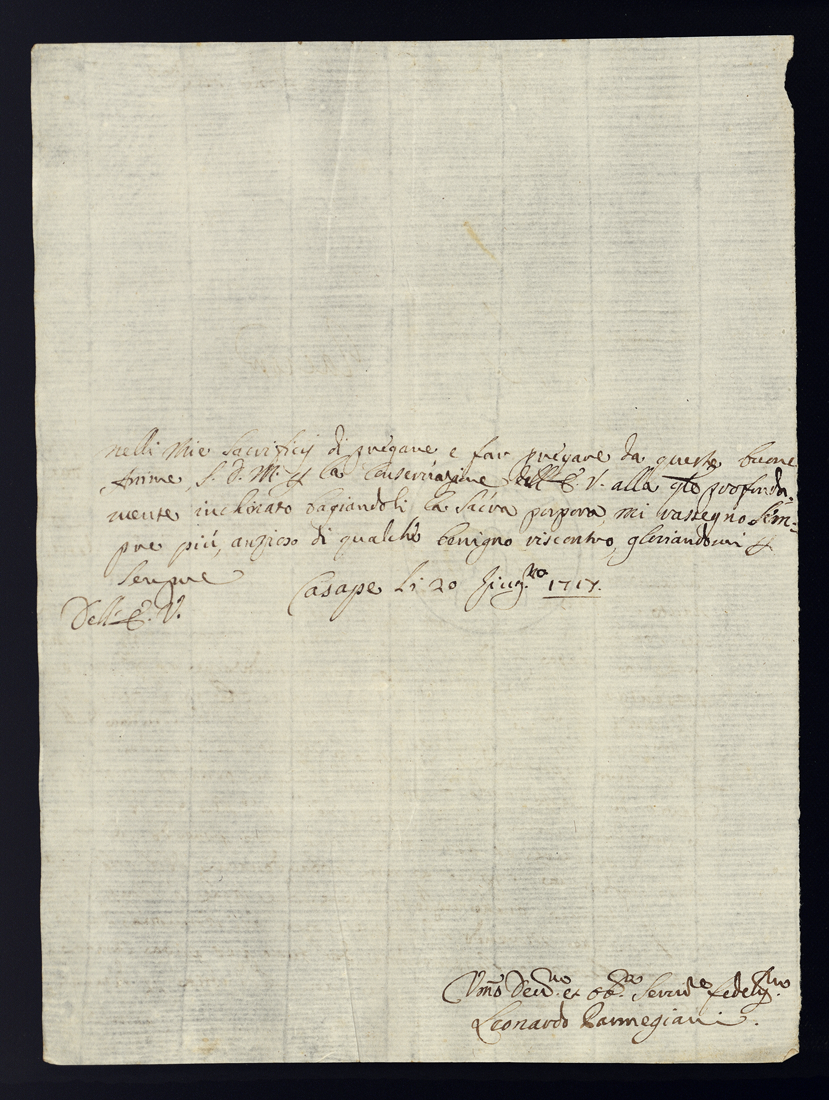 nelli Mie Sacrificij di pregare e far pregare da queste buone
Anime S. D. M. p la Conservazione dell'E. V. alla qle profonda-
mente inchinato bagiandoli la Sacra porpora, mi rassegno Sem-
pre più, anzioso di qualche benigno riscontro, gloriandomi p
Sempre
Casape li 20 Giug.no 1717.
Dell'E. V.
Vmo Dev.mo et Obb.mo Servid.e fedeliss.mo
Leonardo Parmegiani.